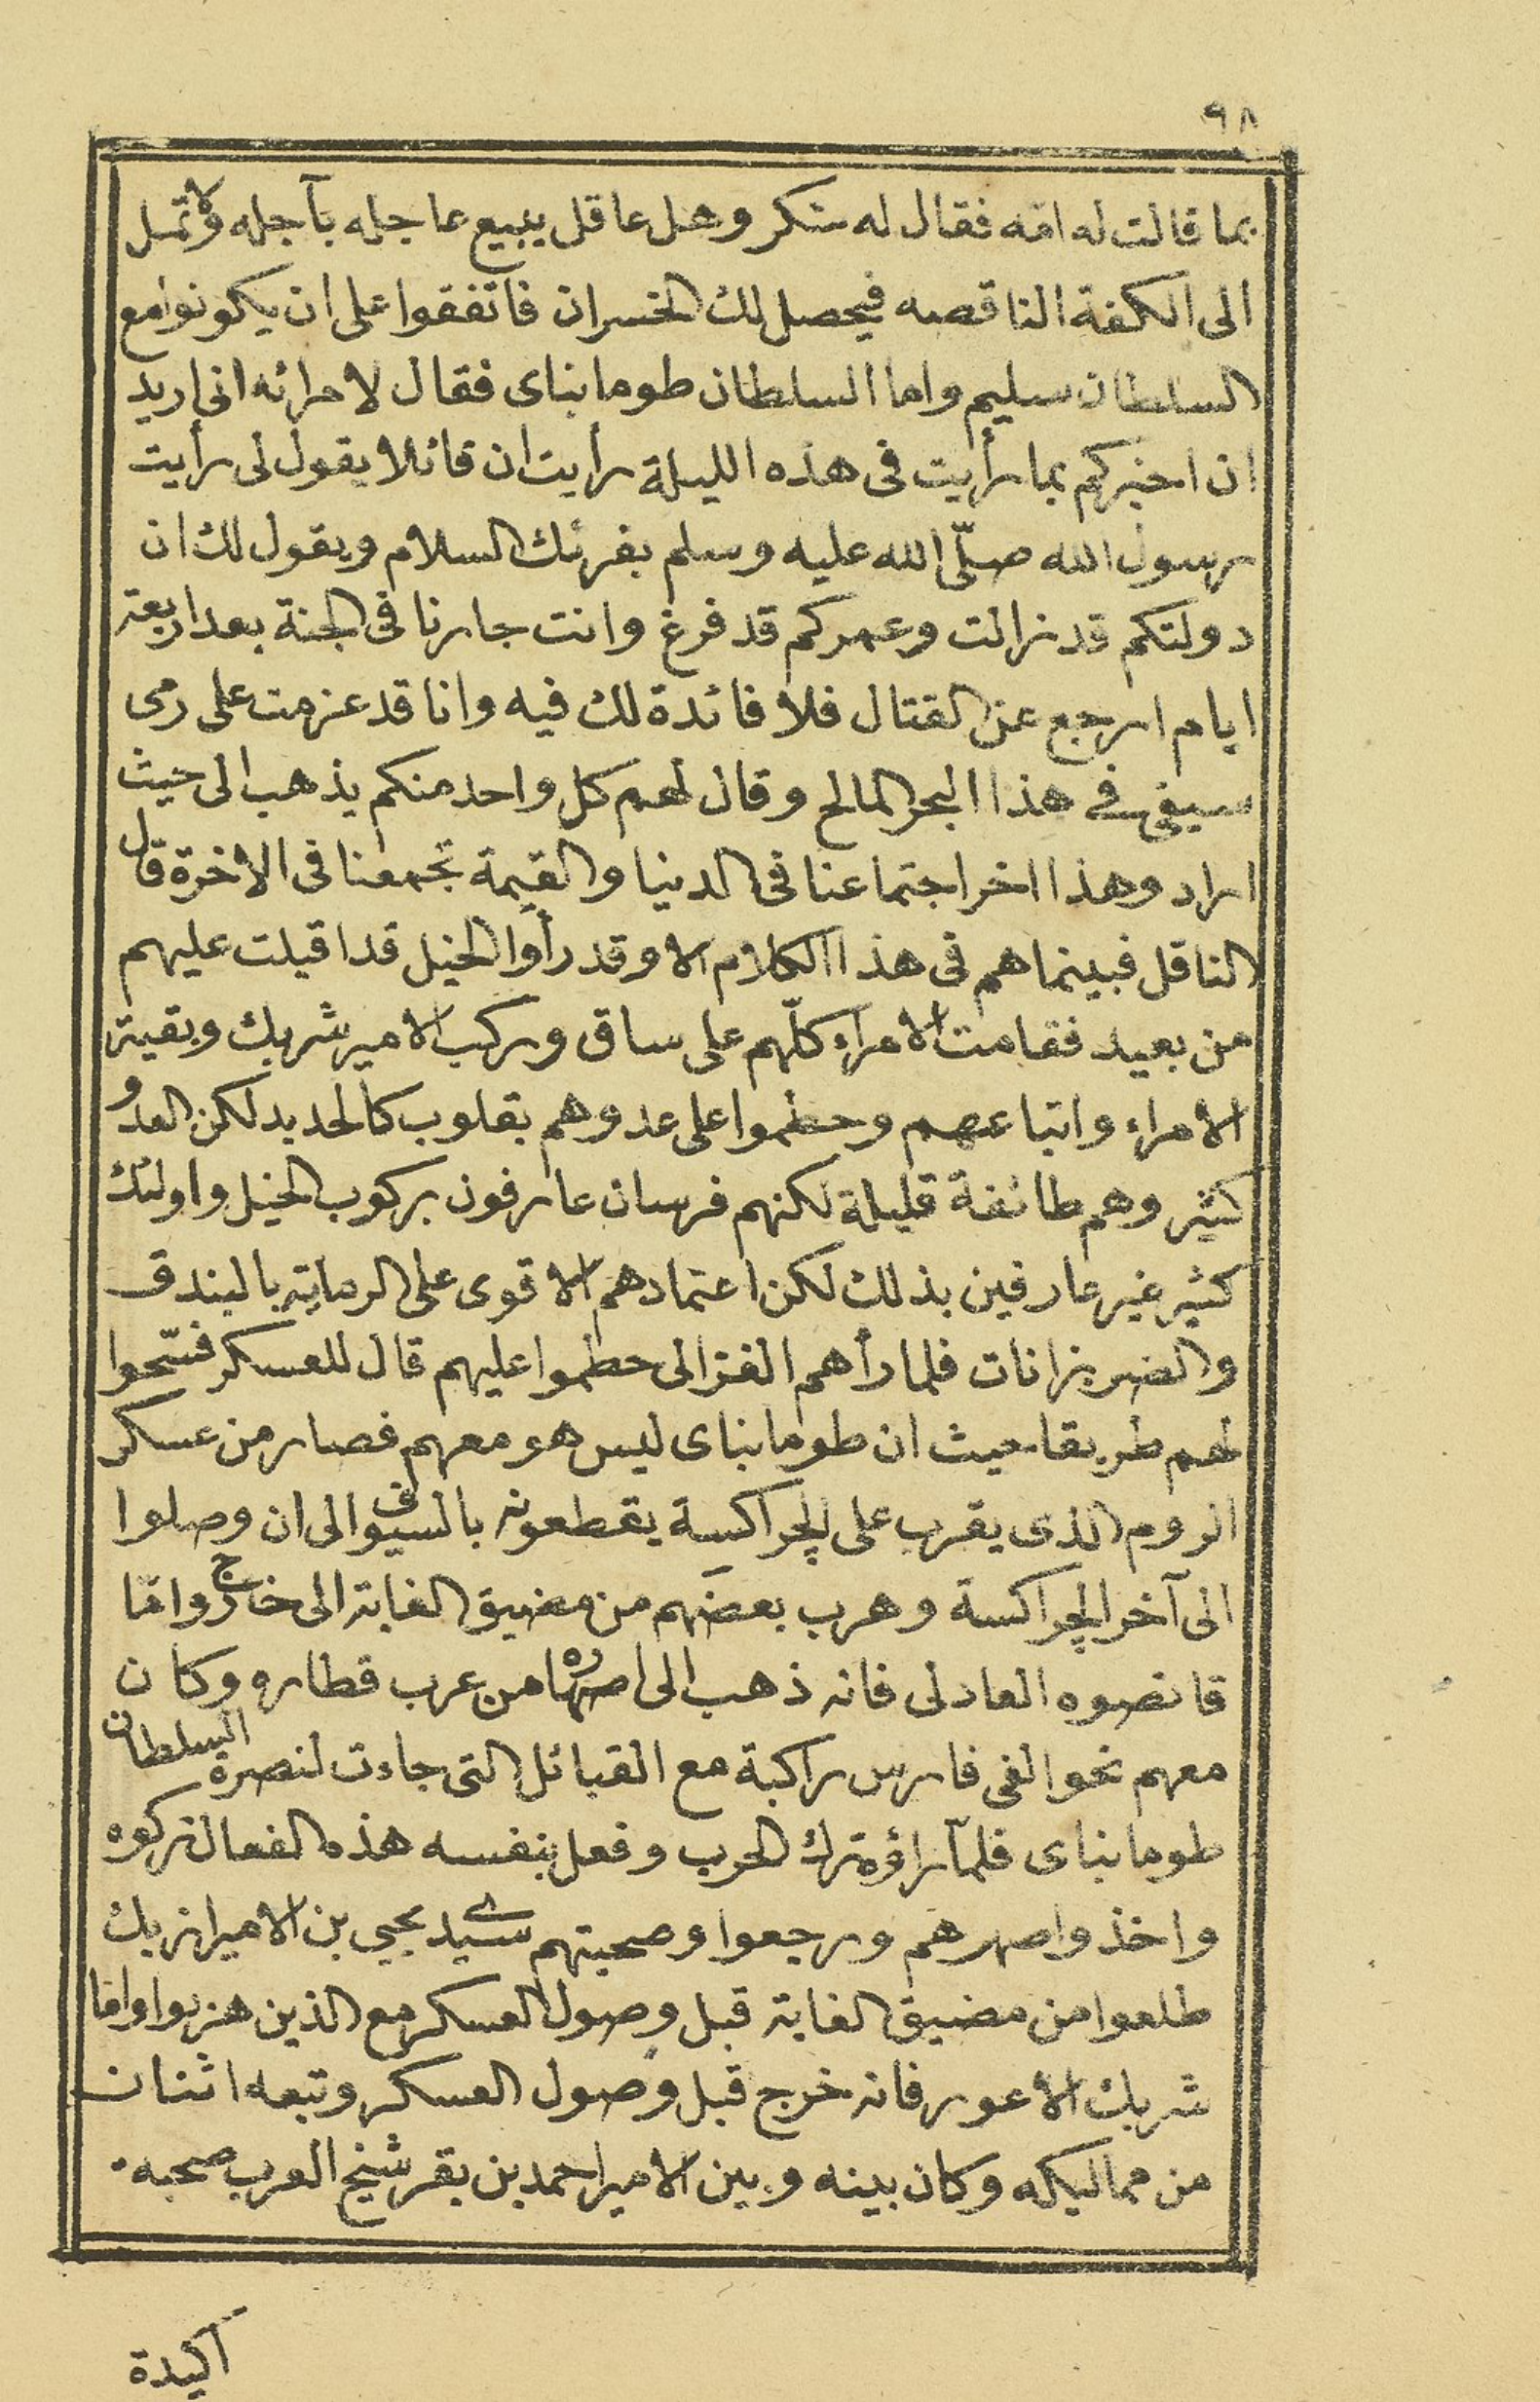 ٩٨
بما قالت له امّه فقال له شكر وهل عاقل يبيع عاجله بآجله ولا تمل
الى الكفة الناقصه فيحصل لك الخسران فاتفقوا على ان يكونوا مع
السلطان سليم واما السلطان طومانباى فقال لامرائه انى اريد
ان اخبركم بما رأيت فى هذه الليلة رأيت ان قائلا يقول لى رأيت
رسول الله صلّى الله عليه وسلم يقرئك السلام ويقول لك ان
دولتكم قد زالت وعمركم قد فرغ وانت جارنا فى الجنة بعد اربعة
ايام ارجع عن القتال فلا فائدة لك فيه وانا قد عزمت على رمى
سيفى فى هذا البحر المالح وقال لهم كل واحد منكم يذهب الى حيث
اراد وهذا اخر اجتماعنا فى الدنيا والقيمة تجمعنا فى الاخرة قال
الناقل فبينما هم فى هذا الكلام الا وقد رأوا الخيل قد اقبلت عليهم
من بعيد فقامت الامراء كلّهم على ساق وركب الامير شربك وبقية
الامراء واتباعهم وحطموا على عدوهم بقلوب كالحديد لكن العدو
كثير وهم طائفة قليلة لكنهم فرسان عارفون بركوب الخيل واولئك
كثير غير عارفين بذلك لكن اعتمادهم الاقوى على الرماية بالبندق
والضربزانات فلما رأهم الغزالى حطموا عليهم قال للعسكر فسّحوا
لهم طريقا حيث ان طومانباى ليس هو معهم فصار من عسكر
الروم الذى يقرب على الچراكسة يقطعونه بالسيوف الى ان وصلوا
الى آخر الچراكسة وهرب بعضهم من مضيق الغابة الى خارج وامّا
قانصوه العادلى فانه ذهب الى اصهاره من عرب قطاره وكان
معهم نحو الفى فارس راكبة مع القبائل التى جاءت لنصرة السلطان
طومانباى فلمّا رأوه ترك الحرب وفعل بنفسه هذه الفعال تركوه
واخذوا صهرهم ورجعوا وصحبتهم سيد يحيى بن الامير ازبك
طلعوا من مضيق الغابة قبل وصول العسكر مع الذين هربوا وامّا
شربك الاعور فانه خرج قبل وصول العسكر وتبعه اثنان
من مماليكه وكان بينه وبين الامير احمد بن بقر شيخ العرب صحبه
اكيدة